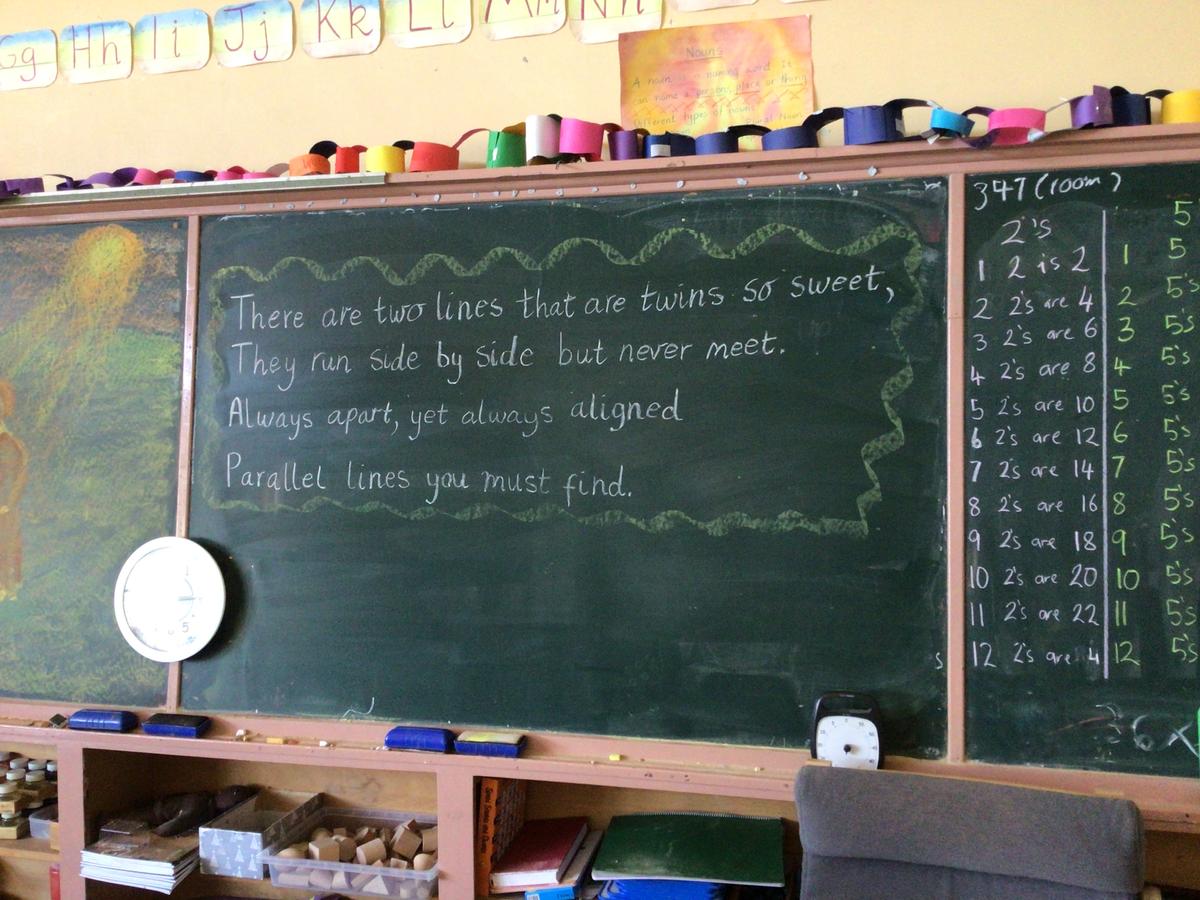 Gg Hh Ii Jj Kk Ll Mm Nn
Nouns
A noun is a naming word. It
can name a person, place or thing
Different types of nouns
There are two lines that are twins so sweet,
They run side by side but never meet.
Always apart, yet always aligned
Parallel lines you must find.
347 (room)
2's
1 2 is 2
2 2's are 4
3 2's are 6
4 2's are 8
5 2's are 10
6 2's are 12
7 2's are 14
8 2's are 16
9 2's are 18
10 2's are 20
11 2's are 22
12 2's are 4
5
1 5
2 5's
3 5's
4 5's
5 5's
6 5's
7 5's
8 5's
9 5's
10 5's
11 5's
12 5's
s
36x
5